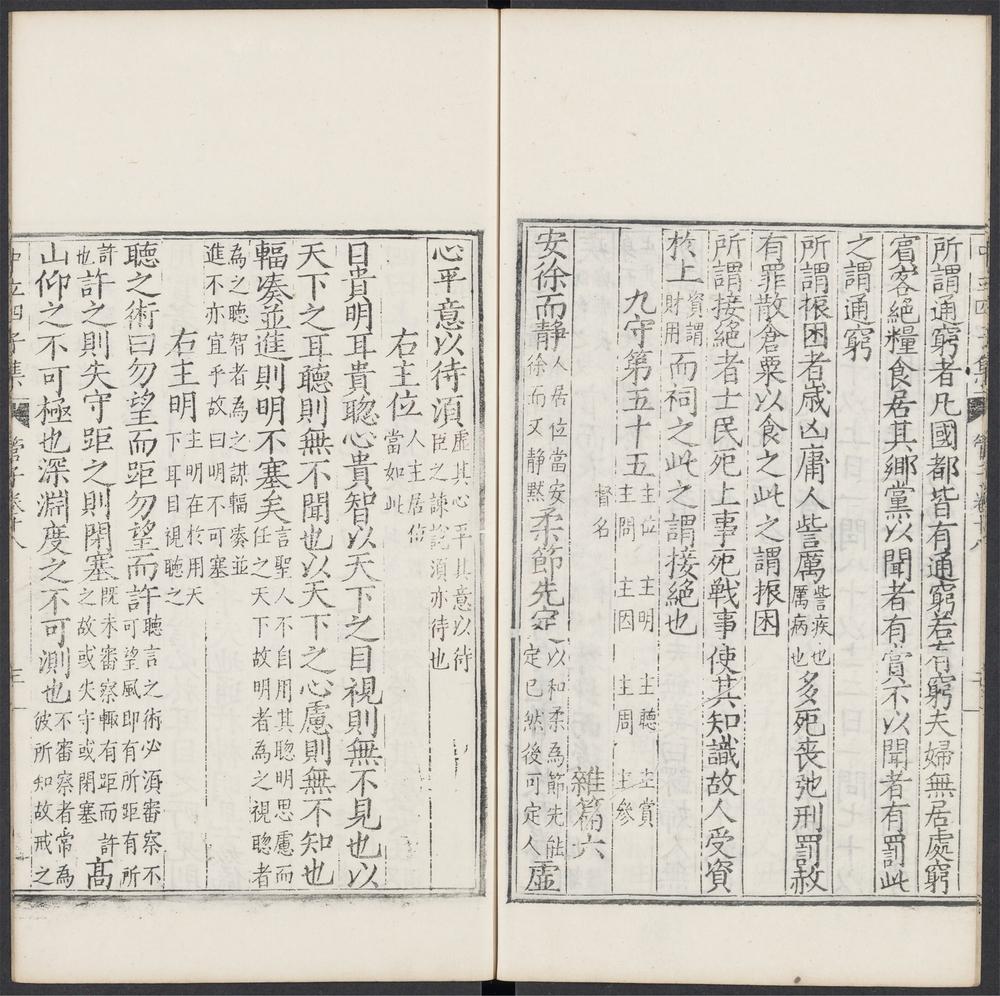 所謂通窮者凡國都皆有通窮若有窮夫婦無居處窮
賓客絶糧食居其鄉黨以聞者有賞不以聞者有罰此
之謂通窮
所謂振困者歳凶庸人訾厲訾疾也厲病也多死喪弛刑罰赦
有罪散倉粟以食之此之謂振困
所謂接絶者士民死上事死戰事使其知識故人受資
於上資謂財用而祠之此之謂接絶也
九守第五十五 主位 主明 主聽 主賞 主問 主因 主周 主參 督名 雜篇六
安徐而静人居位當安徐而又静默柔節先定以和柔為節先能定已然後可定人虛
心平意以待湏虛其心平其意以待臣之諫説湏亦待也
右主位人主居位當如此
目貴明耳貴聦心貴智以天下之目視則無不見也以
天下之耳聽則無不聞也以天下之心慮則無不知也
輻凑並進則明不塞矣言聖人不自用其聦明思慮而任之天下故明者為之視聦者
為之聽智者為之謀輻凑並進不亦宜乎故曰明不可塞
右主明主明在於用天下耳目視聽之
聽之術曰勿望而距勿望而許聽言之術必湏審察不可望風即有所距有所
許也許之則失守距之則閉塞既未審察輒有距而許之故或失守或閉塞髙
山仰之不可極也深淵度之不可測也不審察者常為彼所知故戒之
中立四子集 管子卷十八